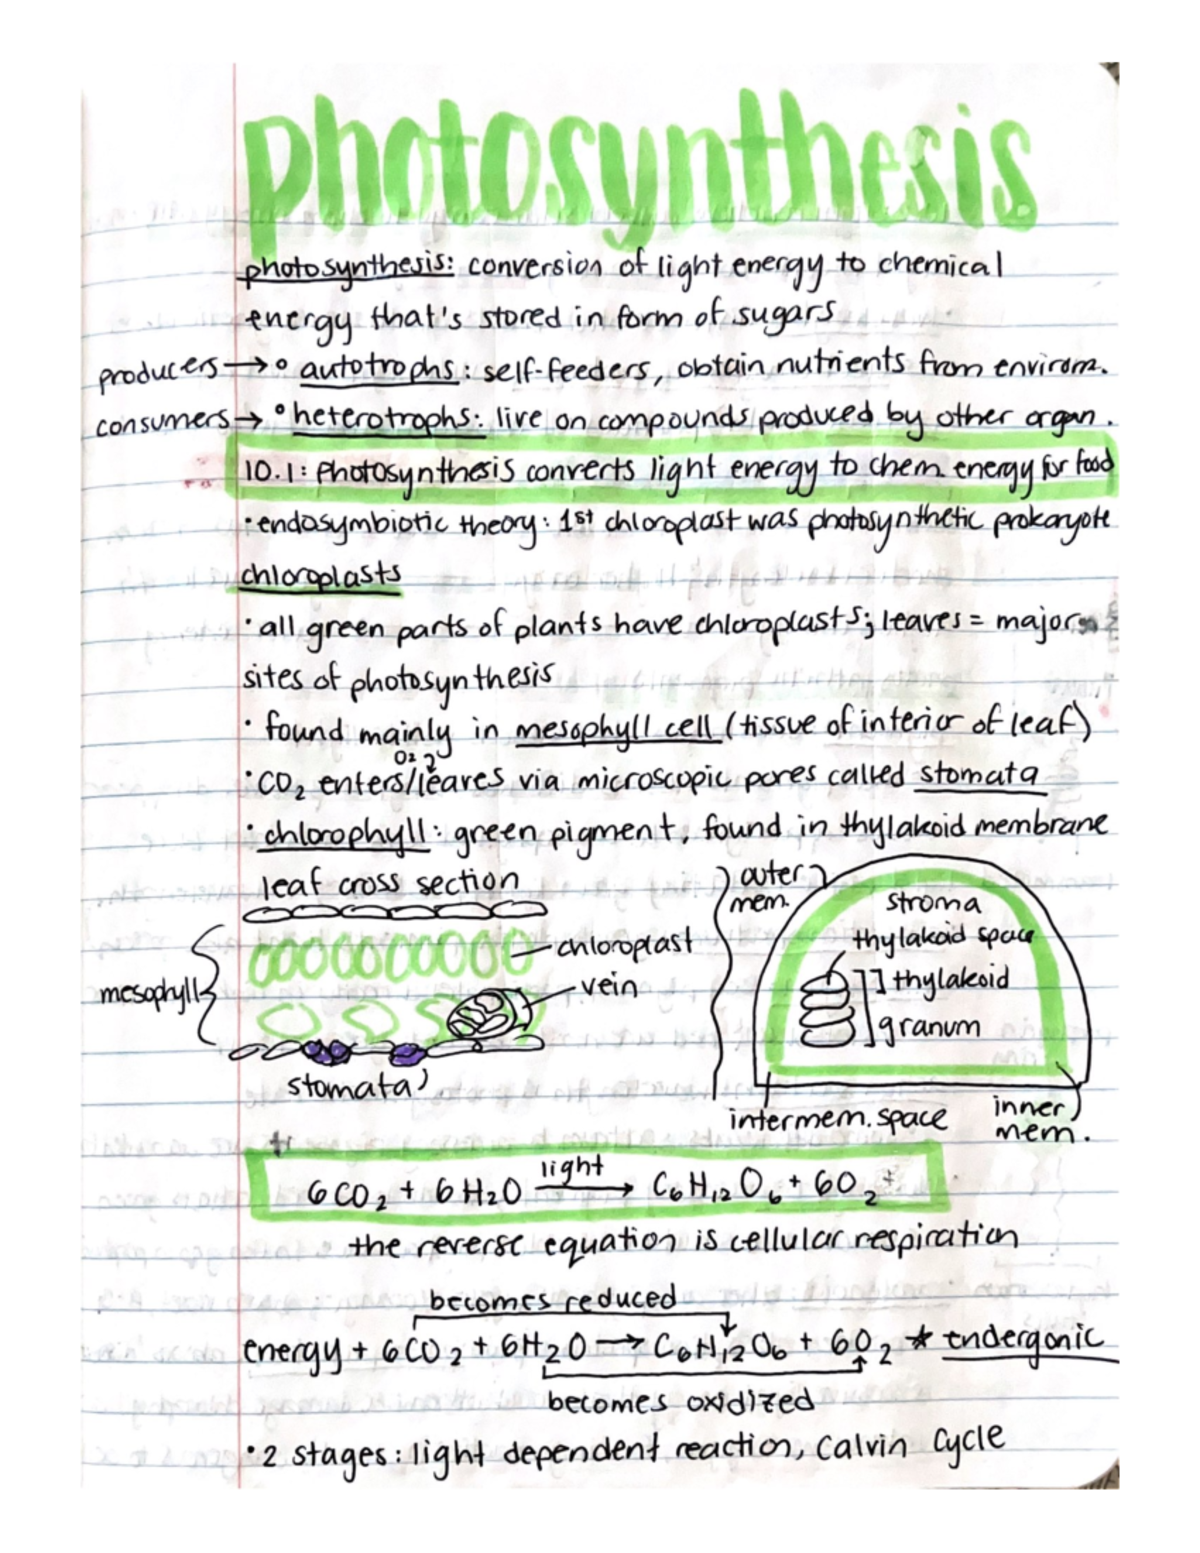 photosynthesis
photosynthesis: conversion of light energy to chemical
energy that's stored in form of sugars
producers → ° autotrophs: self-feeders, obtain nutrients from environ.
consumers → ° heterotrophs: live on compounds produced by other organ.
10.1: photosynthesis converts light energy to chem. energy for food
· endosymbiotic theory: 1st chloroplast was photosynthetic prokaryote
chloroplasts
· all green parts of plants have chloroplasts; leaves = major
sites of photosynthesis
· found mainly in mesophyll cell (tissue of interior of leaf)
O₂
· CO₂ enters/leaves via microscopic pores called stomata
· chlorophyll: green pigment, found in thylakoid membrane
leaf cross section
mesophyll
chloroplast
vein
stomata
outer
mem.
stroma
thylakoid space
thylakoid
granum
intermem. space
inner
mem.
light
6CO₂ + 6H₂O → C₆H₁₂O₆ + 6O₂
the reverse equation is cellular respiration
becomes reduced
energy + 6CO₂ + 6H₂O → C₆H₁₂O₆ + 6O₂ * endergonic
becomes oxidized
· 2 stages: light dependent reaction, Calvin Cycle